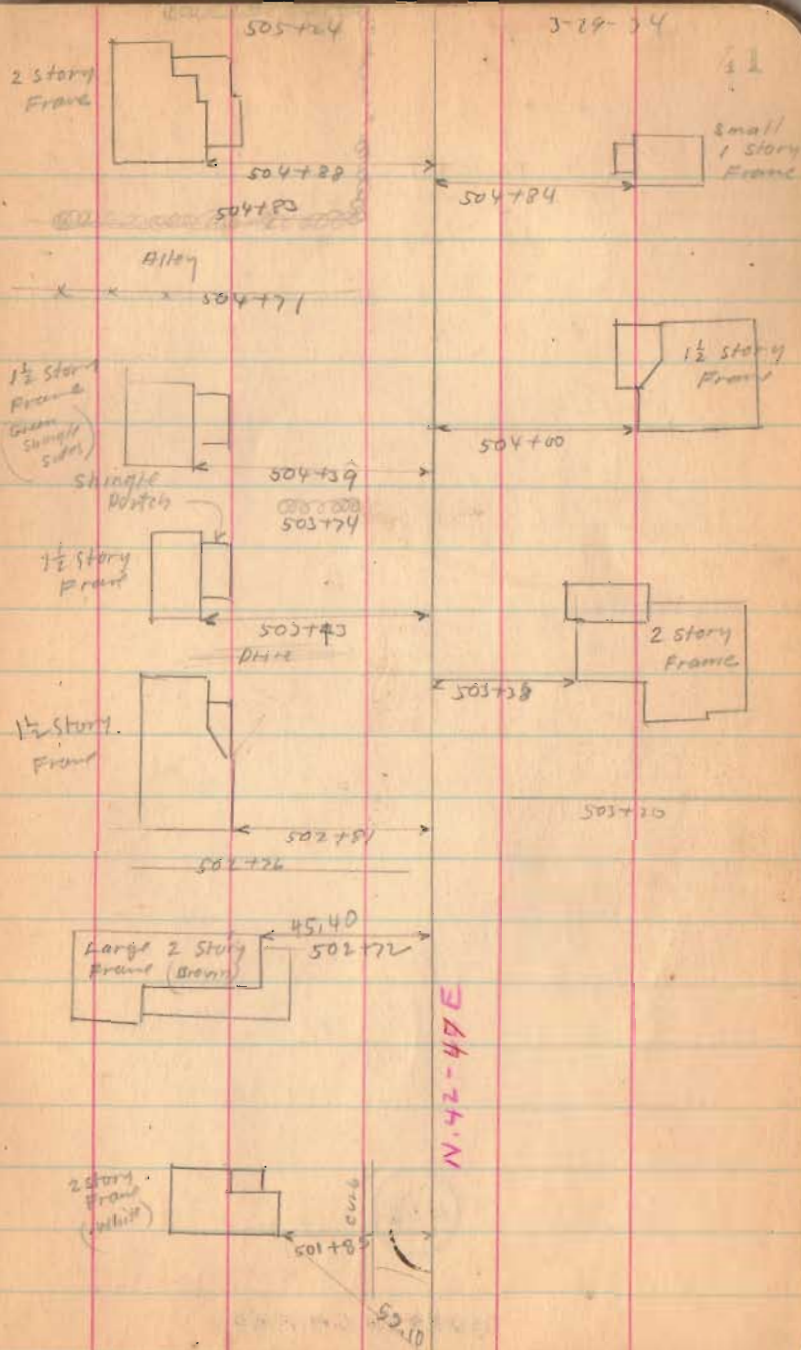 505+24
3-29-34
41
2 Story
Frame
Small
1 Story
Frame
504+88
504+84
504+83
Alley
x x x 504+71
1½ Story
Frame
(Green
Shingle
Sides)
1½ Story
Frame
504+00
504+39
Shingle
Portch
503+74
1½ Story
Fram
503+43
Drive
2 Story
Frame
503+38
1½ Story.
Frame
503+20
502+81
502+76
45.40
Large 2 Story
Frame (Brown)
502+72
N. 42-47 E
2 Story
Frame
(White)
Curb
501+85